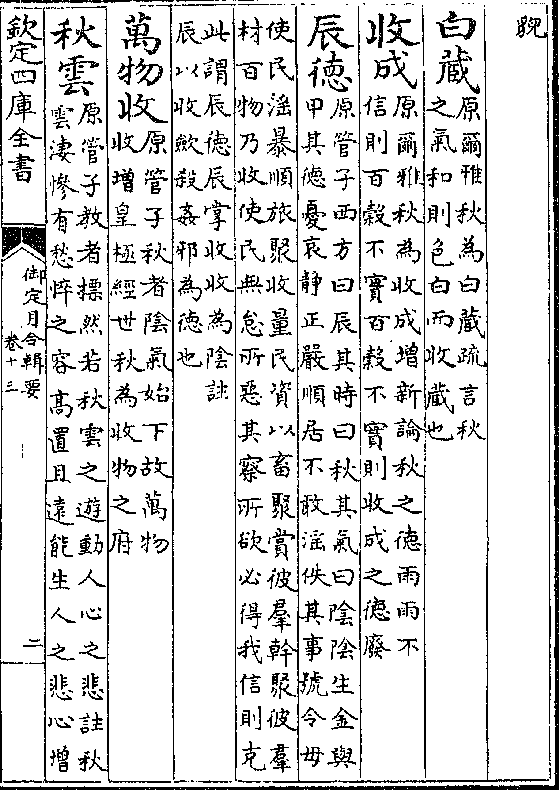 白藏 原爾雅秋為白藏疏言秋
之氣和則色白而收藏也
收成 原爾雅秋為收成增新論秋之德雨雨不
信則百穀不實百穀不實則收成之德廢
辰德 原管子西方曰辰其時曰秋其氣曰陰陰生金與
甲其德憂哀靜正嚴順居不敢淫佚其事號令毋
使民淫暴順旅聚收量民資以畜聚賞彼羣幹聚彼羣
材百物乃收使民無怠所惡其察所欲必得我信則克
此謂辰德辰掌收收為陰註
辰以收斂殺姦邪為德也
萬物收 原管子秋者陰氣始下故萬物
收增皇極經世秋為收物之府
秋雲 原管子教者摽然若秋雲之遊動人心之悲註秋
雲淒慘有愁悴之容高置且遠能生人之悲心增
欽定四庫全書
御定月令輯要
卷十三
二